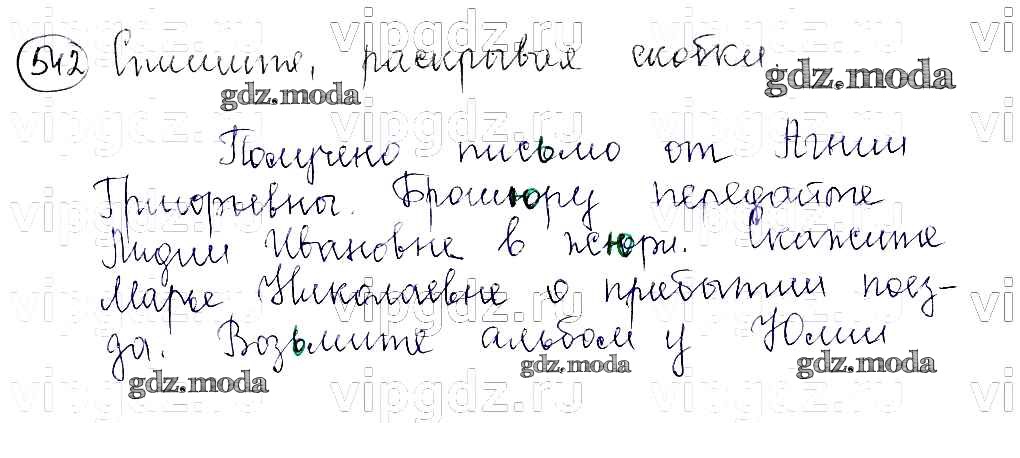 542 Спишите, раскрывая скобки.
Получено письмо от Агнии
Григорьевны. Брошюру передайте
Лидии Ивановне в жюри. Скажите
Марье Николаевне о прибытии поез-
да. Возьмите альбом у Юлии